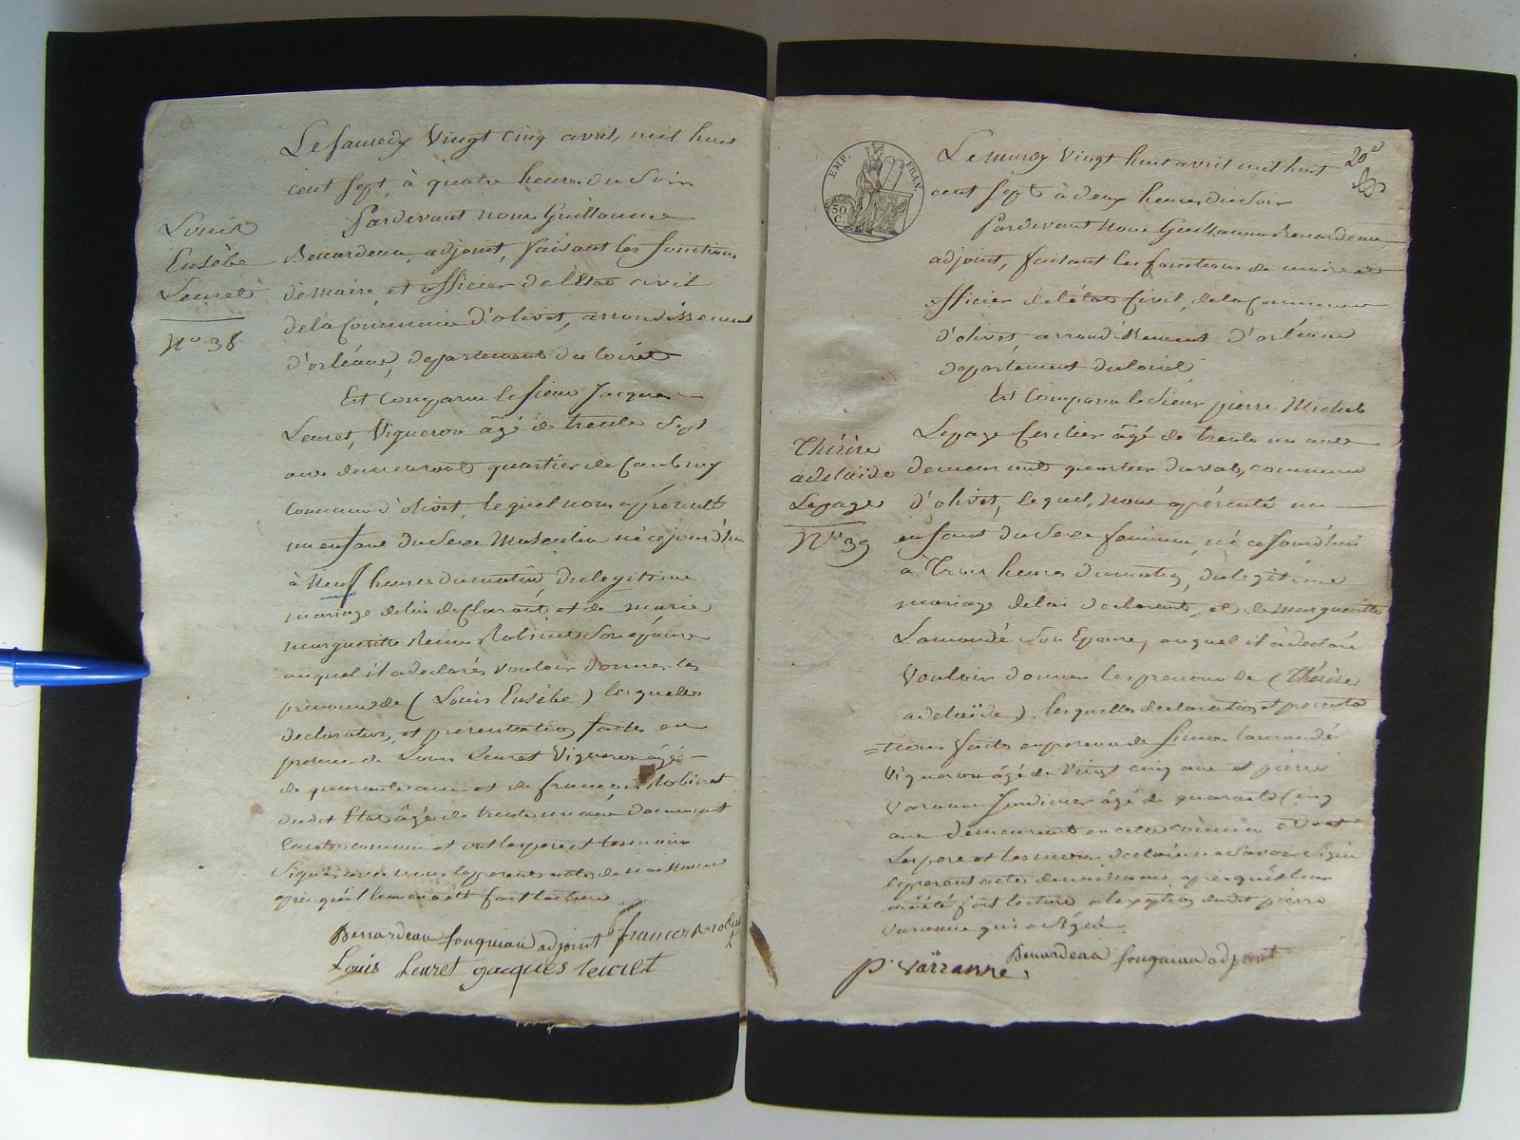 Louis
Eusèbe
Leuret
N° 38
Le samedy Vingt cinq avril, mil huit
cent sept, à quatre heures du Soir
Pardevant nous Guillaume
Benardeau adjoint, faisant les fonctions
de maire et officier de l'Etat civil
de la Commune d'olivet, arrondissement
d'orléans, département du loiret
Est Comparu le sieur Jacques
Leuret, Vigneron âgé de trente sept
ans demeurant quartier de
Commune d'olivet, lequel nous a présenté
un enfant du Sexe Masculin né cejourd'hui
à Neuf heures du matin, du légitime
mariage de lui déclarant, et de marie
marguerite Reine Robinet Son épouse
auquel il a déclaré vouloir donner les
prénoms de ( Louis Eusèbe ) lesquelles
déclaration, et présentation faites en
présence de Louis Leuret Vigneron âgé
de quarante ans et de françois Robinet
dudit Etat âgé de trente un ans demeurant
commune et ont les père et temoins
Signé avec nous le présent acte de naissance
après qu'il leur en a été fait lecture
Benardeau fouqueau adjoint françois Robinet
Louis Leuret jacques leuret
EMP. FRAN.
50 C
20e
Le mardy Vingt huit avril mil huit
cent sept à deux heures du Soir
Pardevant Nous Guillaume Benardeau
adjoint, faisant les fonctions de maire et
officier de l'état Civil, de la Commune
d'olivet, arrondissement d'orléans
département du loiret
Est Comparu le Sieur pierre Michel
Thérèse
adelaïde
Lepage
N° 39
Lepage Cerclier âgé de trente un ans
demeurant quartier du val, commune
d'olivet, lequel, Nous a présenté un
enfant du Sexe féminin, né cejourd'hui
à Trois heures du matin, du légitime
mariage de lui déclarant, et de marguerite
Lamandé Son Epouse, auquel il a déclaré
Vouloir donner les prénoms de ( Thérèse
adelaïde ) lesquelles déclaration et présenta
=tion faites en présence de Simon lamandé
Vigneron âgé de Vingt cinq ans et pierre
Varanne Jardinier âgé de quarante Cinq
ans demeurants en cette commune et ont
Les père et temoins déclaré ne Savoir Signer
le présent acte de naissance après qu'il leur
en a été fait lecture a l'exception dudit pierre
Varanne qui a Signé
p. varranne Benardeau fouqueau adjoint